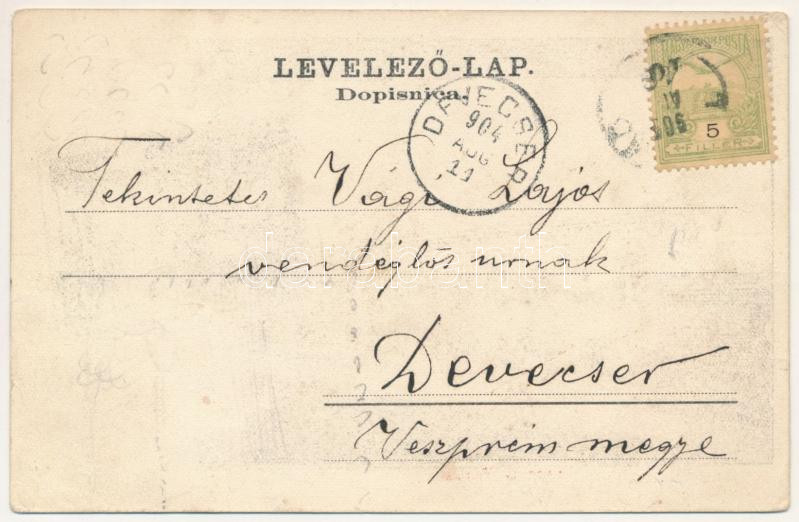 LEVELEZŐ-LAP.
Dopisnica.
DEVECSER
904
AUG
11
MAGYAR KIR. POSTA
5
FILLÉR
Tekintetes Vági Lajos
vendéglős urnak
darabanth
Devecser
Veszprém megye